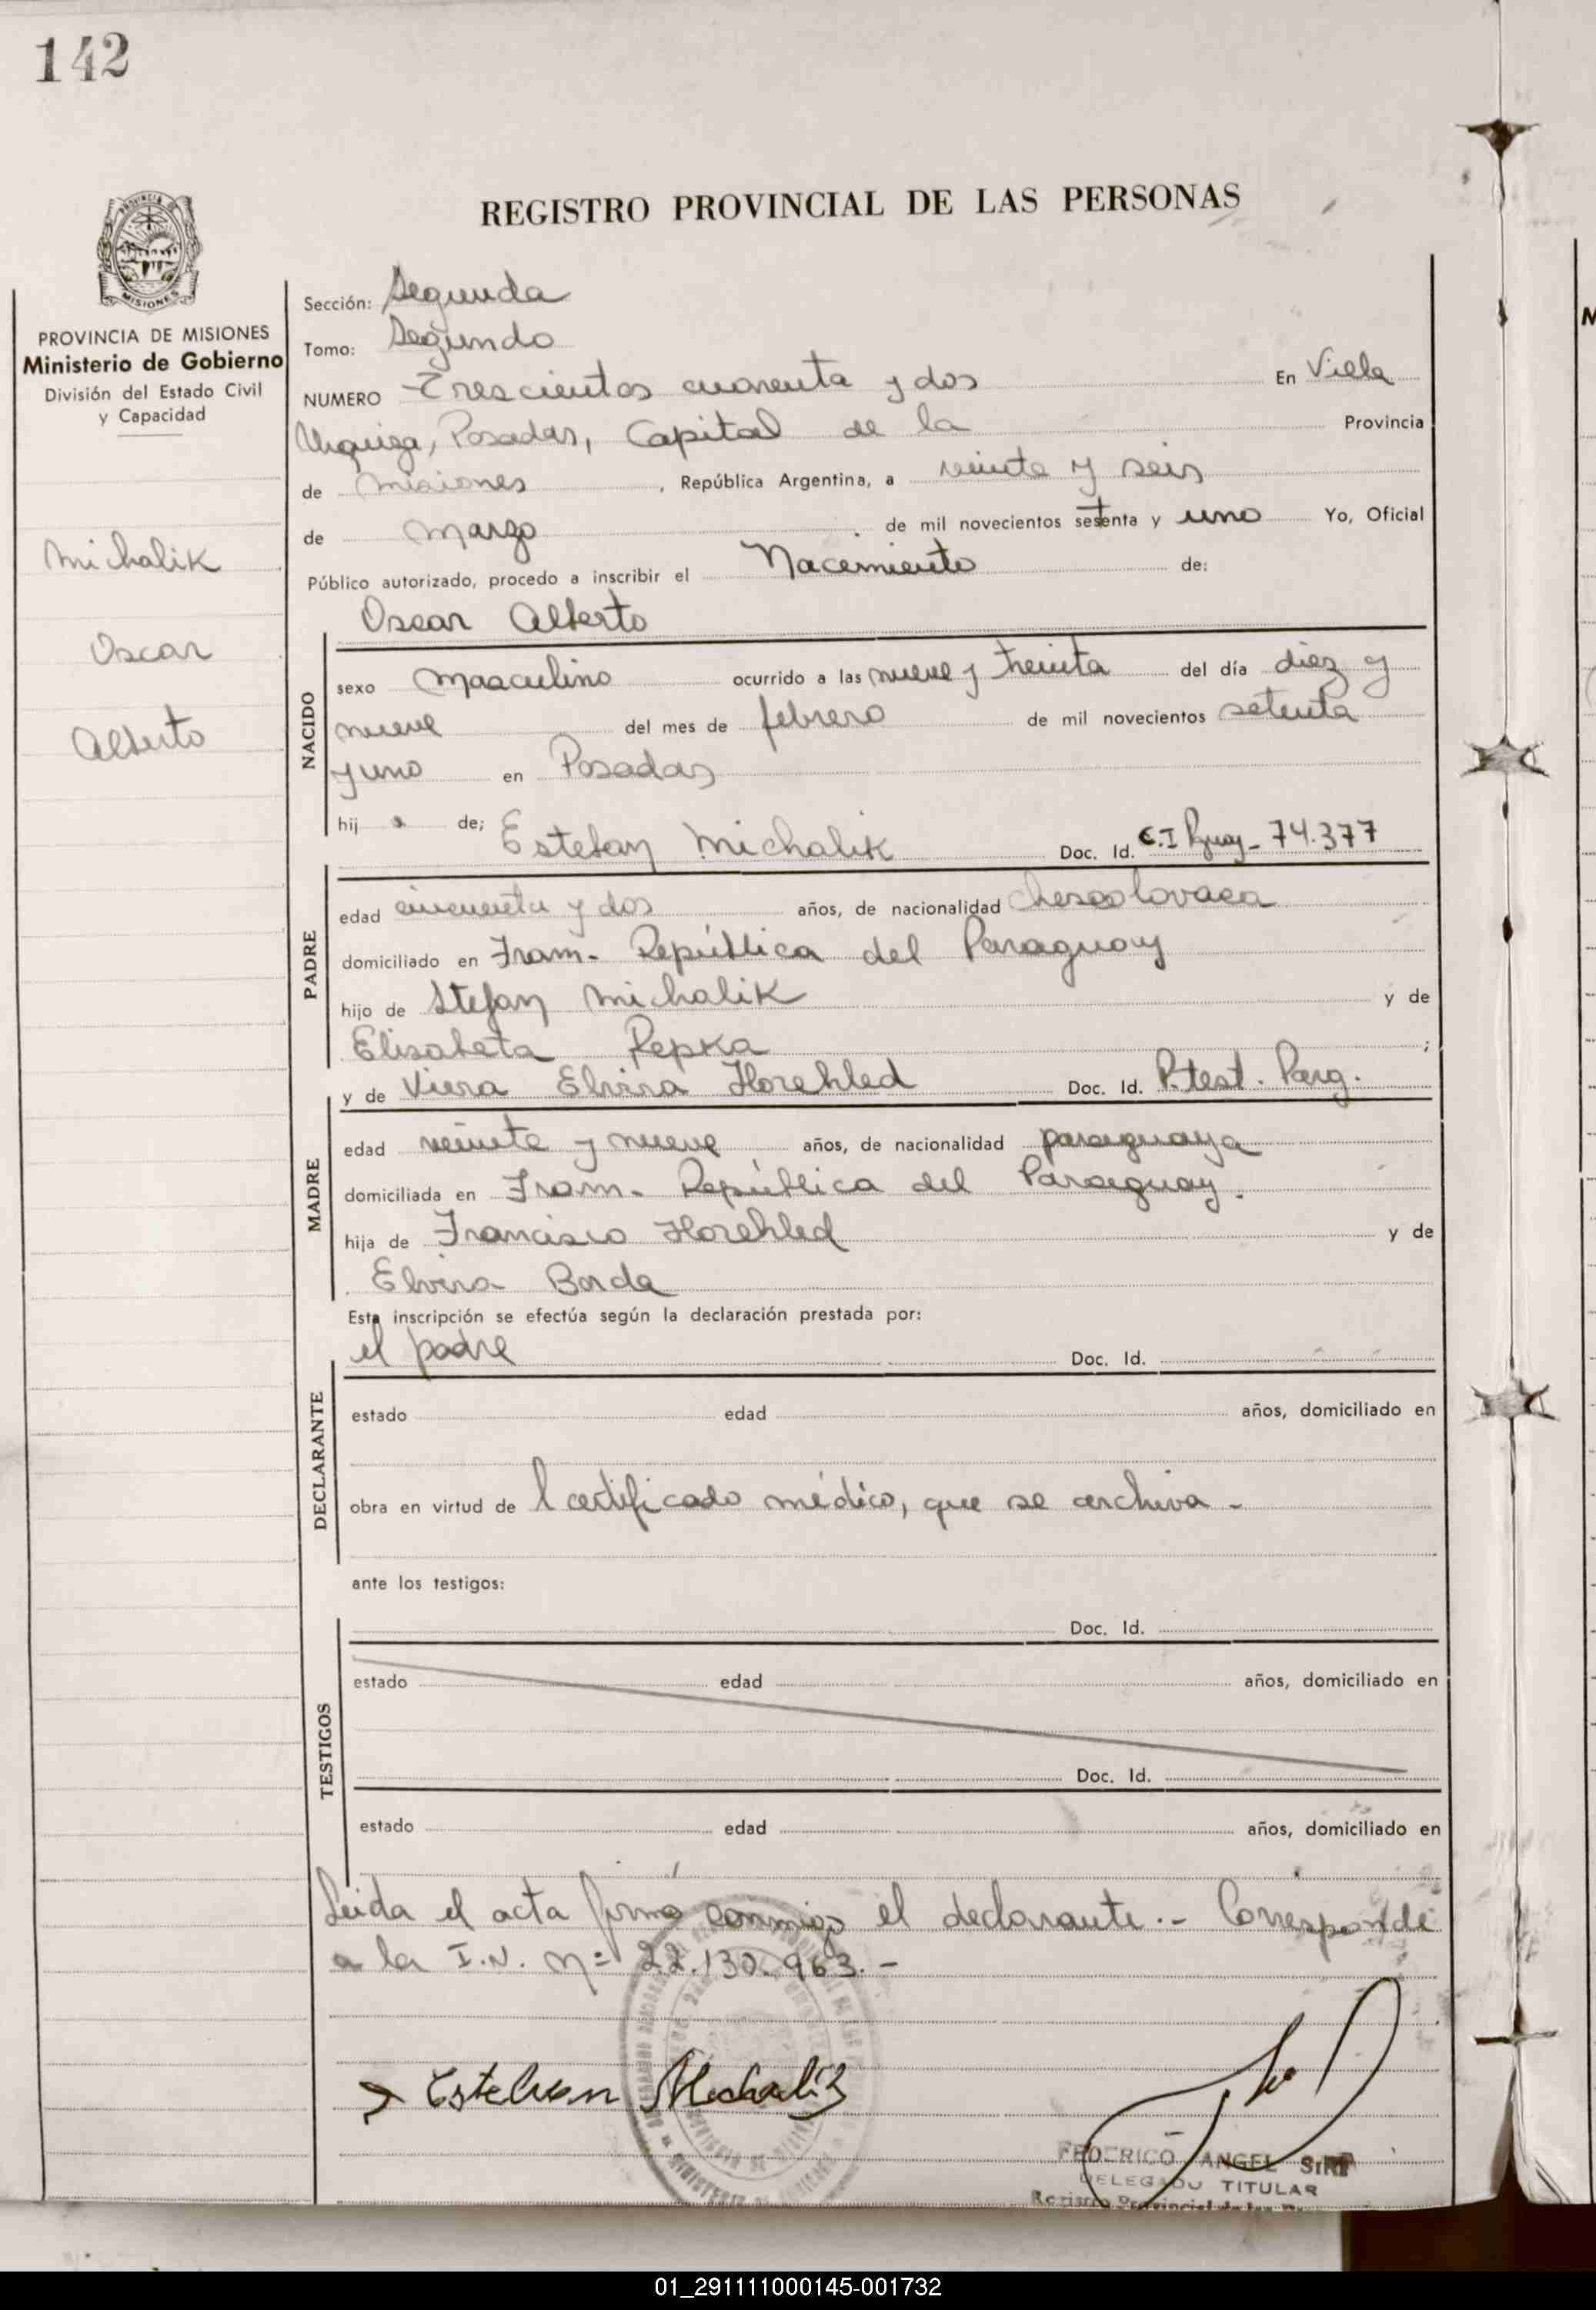 142
REGISTRO PROVINCIAL DE LAS PERSONAS
MISIONES
PROVINCIA DE MISIONES
Ministerio de Gobierno
División del Estado Civil
y Capacidad
Michalik
Oscar
Alberto
Sección: Segunda
Tomo: Segundo
NUMERO Trescientos cuarenta y dos En Villa
Urquiza, Posadas, Capital de la Provincia
de Misiones, República Argentina, a veinte y seis
de Marzo de mil novecientos setenta y uno Yo, Oficial
Público autorizado, procedo a inscribir el Nacimiento de:
Oscar Alberto
NACIDO
sexo masculino ocurrido a las nueve y treinta del día diez y
nueve del mes de febrero de mil novecientos setenta
y uno en Posadas
hij o de; Estefan Michalik Doc. Id. C.I Pguay- 74.377
PADRE
edad cincuenta y dos años, de nacionalidad checoslovaca
domiciliado en Fram- República del Paraguay
hijo de Stefan Michalik y de
Elisabeta Repka ;
y de Viera Elvira Horehled Doc. Id. P.test. Parg.
MADRE
edad veinte y nueve años, de nacionalidad paraguaya
domiciliada en Fram- República del Paraguay.
hija de Francisco Horehled y de
Elvira Borda
Esta inscripción se efectúa según la declaración prestada por:
el padre Doc. Id.
DECLARANTE
estado edad años, domiciliado en
obra en virtud de l certificado médico, que se archiva -
ante los testigos:
Doc. Id.
TESTIGOS
estado edad años, domiciliado en
Doc. Id.
estado edad años, domiciliado en
Leida el acta firmó conmigo el declarante.- Corresponde
a la I.N. nº 22.130.963.-
Esteban Michalik
FEDERICO ANGEL
DELEGADO TITULAR
Registro Provincial de las
01_291111000145-001732